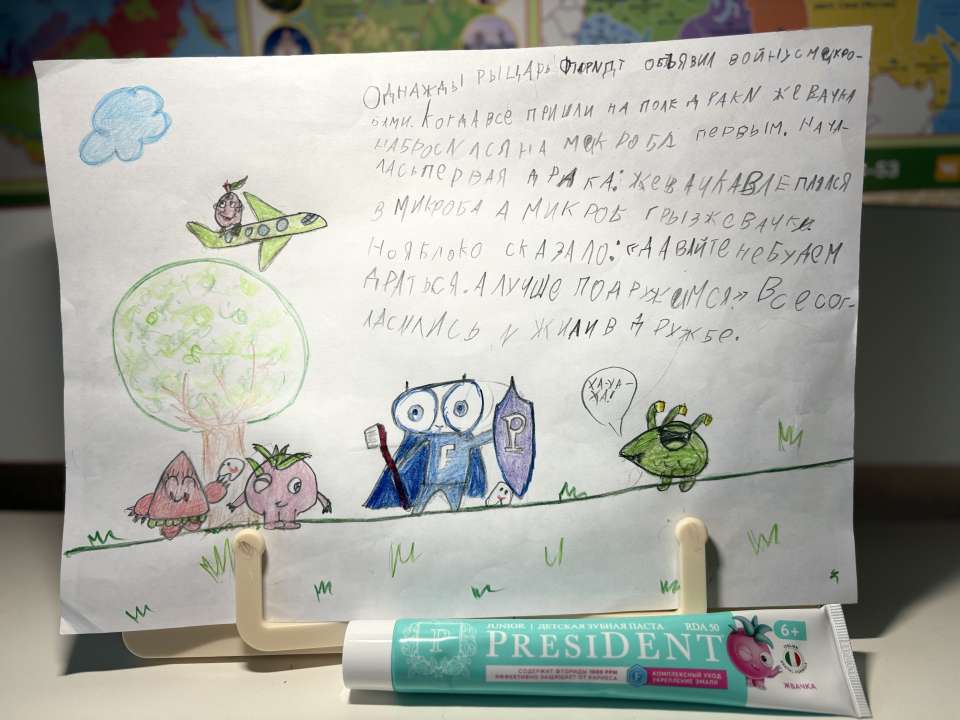 Однажды рыцарь Фторидт объявил войну с микро-
бами. Когда все пришли на поле драки жевачка
набросился на микроба первым. Нача-
лась первая драка: жевачка влеплялся
в микроба а микроб грыз жевачку
Но яблоко сказало: «Давайте не будем
драться. А лучше подружимся» Все сог-
ласились и жили в дружбе.
ХА-ХА-
ХА!
F
P
-53
JUNIOR | ДЕТСКАЯ ЗУБНАЯ ПАСТА RDA 50
PRESIDENT
6+
СОДЕРЖИТ ФТОРИДЫ 1000 PPM
ЭФФЕКТИВНО ЗАЩИЩАЕТ ОТ КАРИЕСА
F
КОМПЛЕКСНЫЙ УХОД
УКРЕПЛЕНИЕ ЭМАЛИ
ЖВАЧКА